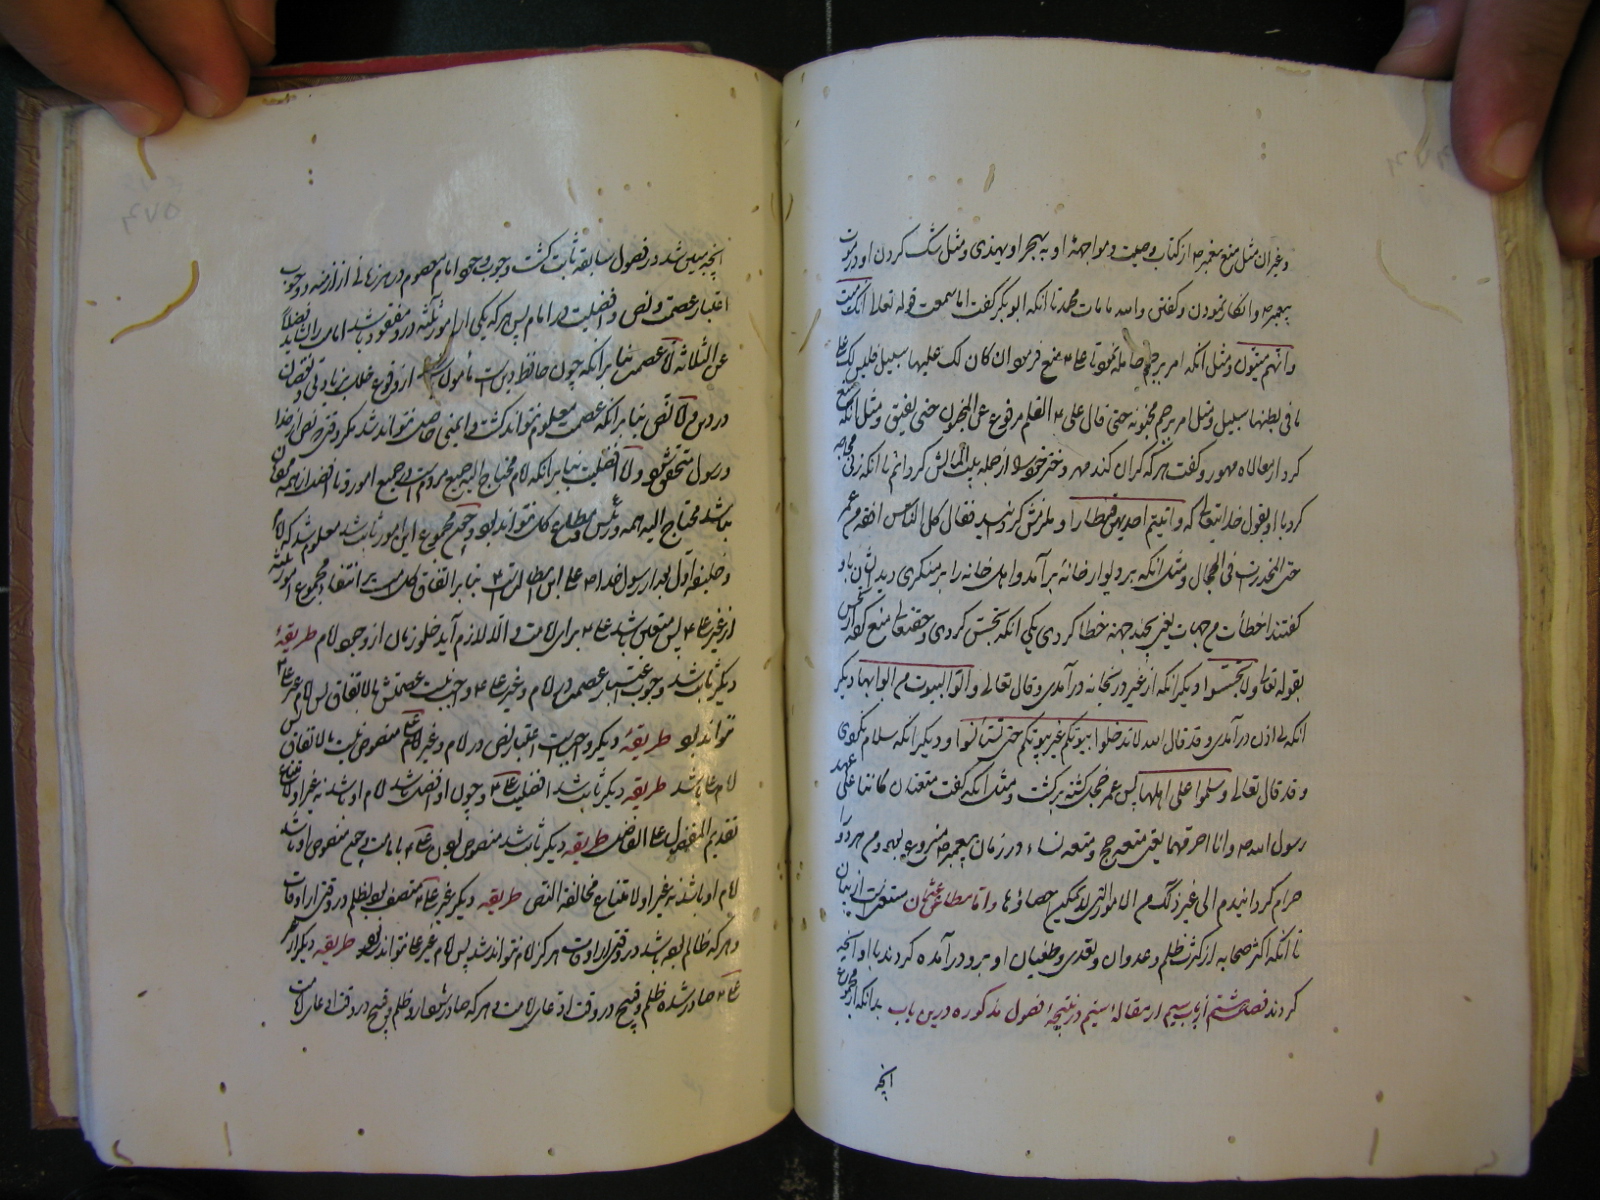 و غیر آن مثل منع پیغمبر ص از کتاب وصیت و مواجههٔ او به یهجر او یهذی و مثل شک کردن او در موت
پیغمبر ص و انکار نمودن و گفتن والله ما مات محمد تا آنکه ابوبکر گفت اما سمعت قوله تعالی انک میت
و انهم میتون و مثل آنکه امر برجم حامله نمود تا علی ع منع فرمود ان کان لک علیها سبیل فلیس لک علی
ما فی بطنها سبیل و مثل امر برجم مجنونه حتی قال علی ع القلم مرفوع عن المجنون حتی یفیق و مثل آنکه منع
کرد از مغالاه مهور و گفت هر که گران کند مهر دختر خود را از جمله بیت المالش گردانم تا آنکه زنی محاجه
کرد با او بقول خدایتعالی که و آتیتم احدیهن قنطارا و ملزمش گردانید فقال کل الناس افقه من عمر
حتی المخدرات فی الحجال و مثل آنکه بر دیوار خانهٔ برآمد و اهل خانه را بر منکری دید ایشان باو
گفتند اخطأت من جهات یعنی بچند جهة خطا کردی یکی آنکه تجسس کردی و حقتعالی منع کرده از تجسس
بقوله تعالی ولا تجسسوا دیگر آنکه از غیر در بخانه درآمدی و قال تعالی و أتوا البیوت من ابوابها دیگر
آنکه بی اذن درآمدی و قد قال الله لا تدخلوا بیوتکم غیر بیوتکم حتی تستأنسوا و دیگر آنکه سلام نکردی
و قد قال تعالی و سلموا علی اهلها پس عمر خجل گشته برگشت و مثل آنکه گفت متعتان کانتا علی عهد
رسول الله ص و انا احرمهما یعنی متعه حج و متعه نساء در زمان پیغمبر ص مشروع بود و من هر دو را
حرام گردانیدم الی غیر ذلک من الامور التی لا یمکن احصاؤها و اما مطاعن عثمان مستغنیست از بیان
تا آنکه اکثر صحابه از کثرت ظلم و عدوان و تعدی و طغیان او برو درآمده کردند با او آنچه
کردند فصل هشتم از باب سیم از مقالهٔ سیم در نتیجهٔ فصول مذکوره درین باب بدانکه از مجموع
آنچه
آنچه مبین شد در فصول سابقه ثابت گشت وجوب وجود امام معصوم در هر زمانی از ازمنه و وجوب
اعتبار عصمت و نص و افضلیت در امام پس هر که یکی از امور ثلثه درو مفقود باشد امامت را نشاید فضلاً
عن الثلاثه اما عصمت بنا بر آنکه چون حافظ دین است مأمون باید از وقوع خلل بزیادتی و نقصان
در دین و اما نص بنا بر آنکه عصمت معلوم نتواند گشت و ایمنی حاصل نتواند شد مگر وقتی که نص از خدا
و رسول متحقق شود و اما افضلیت بنا بر آنکه امام محتاج الیه جمیع مردم است در جمیع امور و تا افضل از همه
نباشد محتاج الیه همه و رئیس مطاع کل نتواند بود و چون مجموع این امور ثابت شد معلوم شد که امام
و خلیفه اول بعد از رسول خدا ص علی ابن ابیطالبست ع بنا بر اتفاق کل امت بر انتفاء مجموع امور ثلثه
از غیر علی ع پس متعین باشد علی ع برای امامت و الا لازم آید خلو زمان از وجود امام طریقهٔ
دیگر ثابت شد وجوب اعتبار عصمت در امام و غیر علی ع واجب نیست عصمتش بالاتفاق پس امام غیر علی ع
نتواند بود طریقهٔ دیگر واجبست اعتبار نص در امام و غیر علی ع منصوص نیست بالاتفاق پس
امام علی باشد طریقه دیگر ثابت شد افضلیت علی ع و چون او افضل باشد امام او باشد نه غیر او لامتناع
تقدیم المفضول علی الفاضل طریقه دیگر ثابت شد منصوص بودن علی ع بامامت و چون منصوص او باشد
امام او باشد نه غیر او لامتناع مخالفة النص طریقه دیگر غیر علی ع متصف بود بظلم در وقتی از اوقات
و هر که ظالم بوده باشد در وقتی از اوقات هرگز امام نتواند شد پس امام غیر علی نتواند بود طریقه دیگر از غیر
علی ع صادر شده ظلم و قبیح در وقت ادعای امامت و هر که صادر شود ازو ظلم و قبیح در وقت ادعای امامت